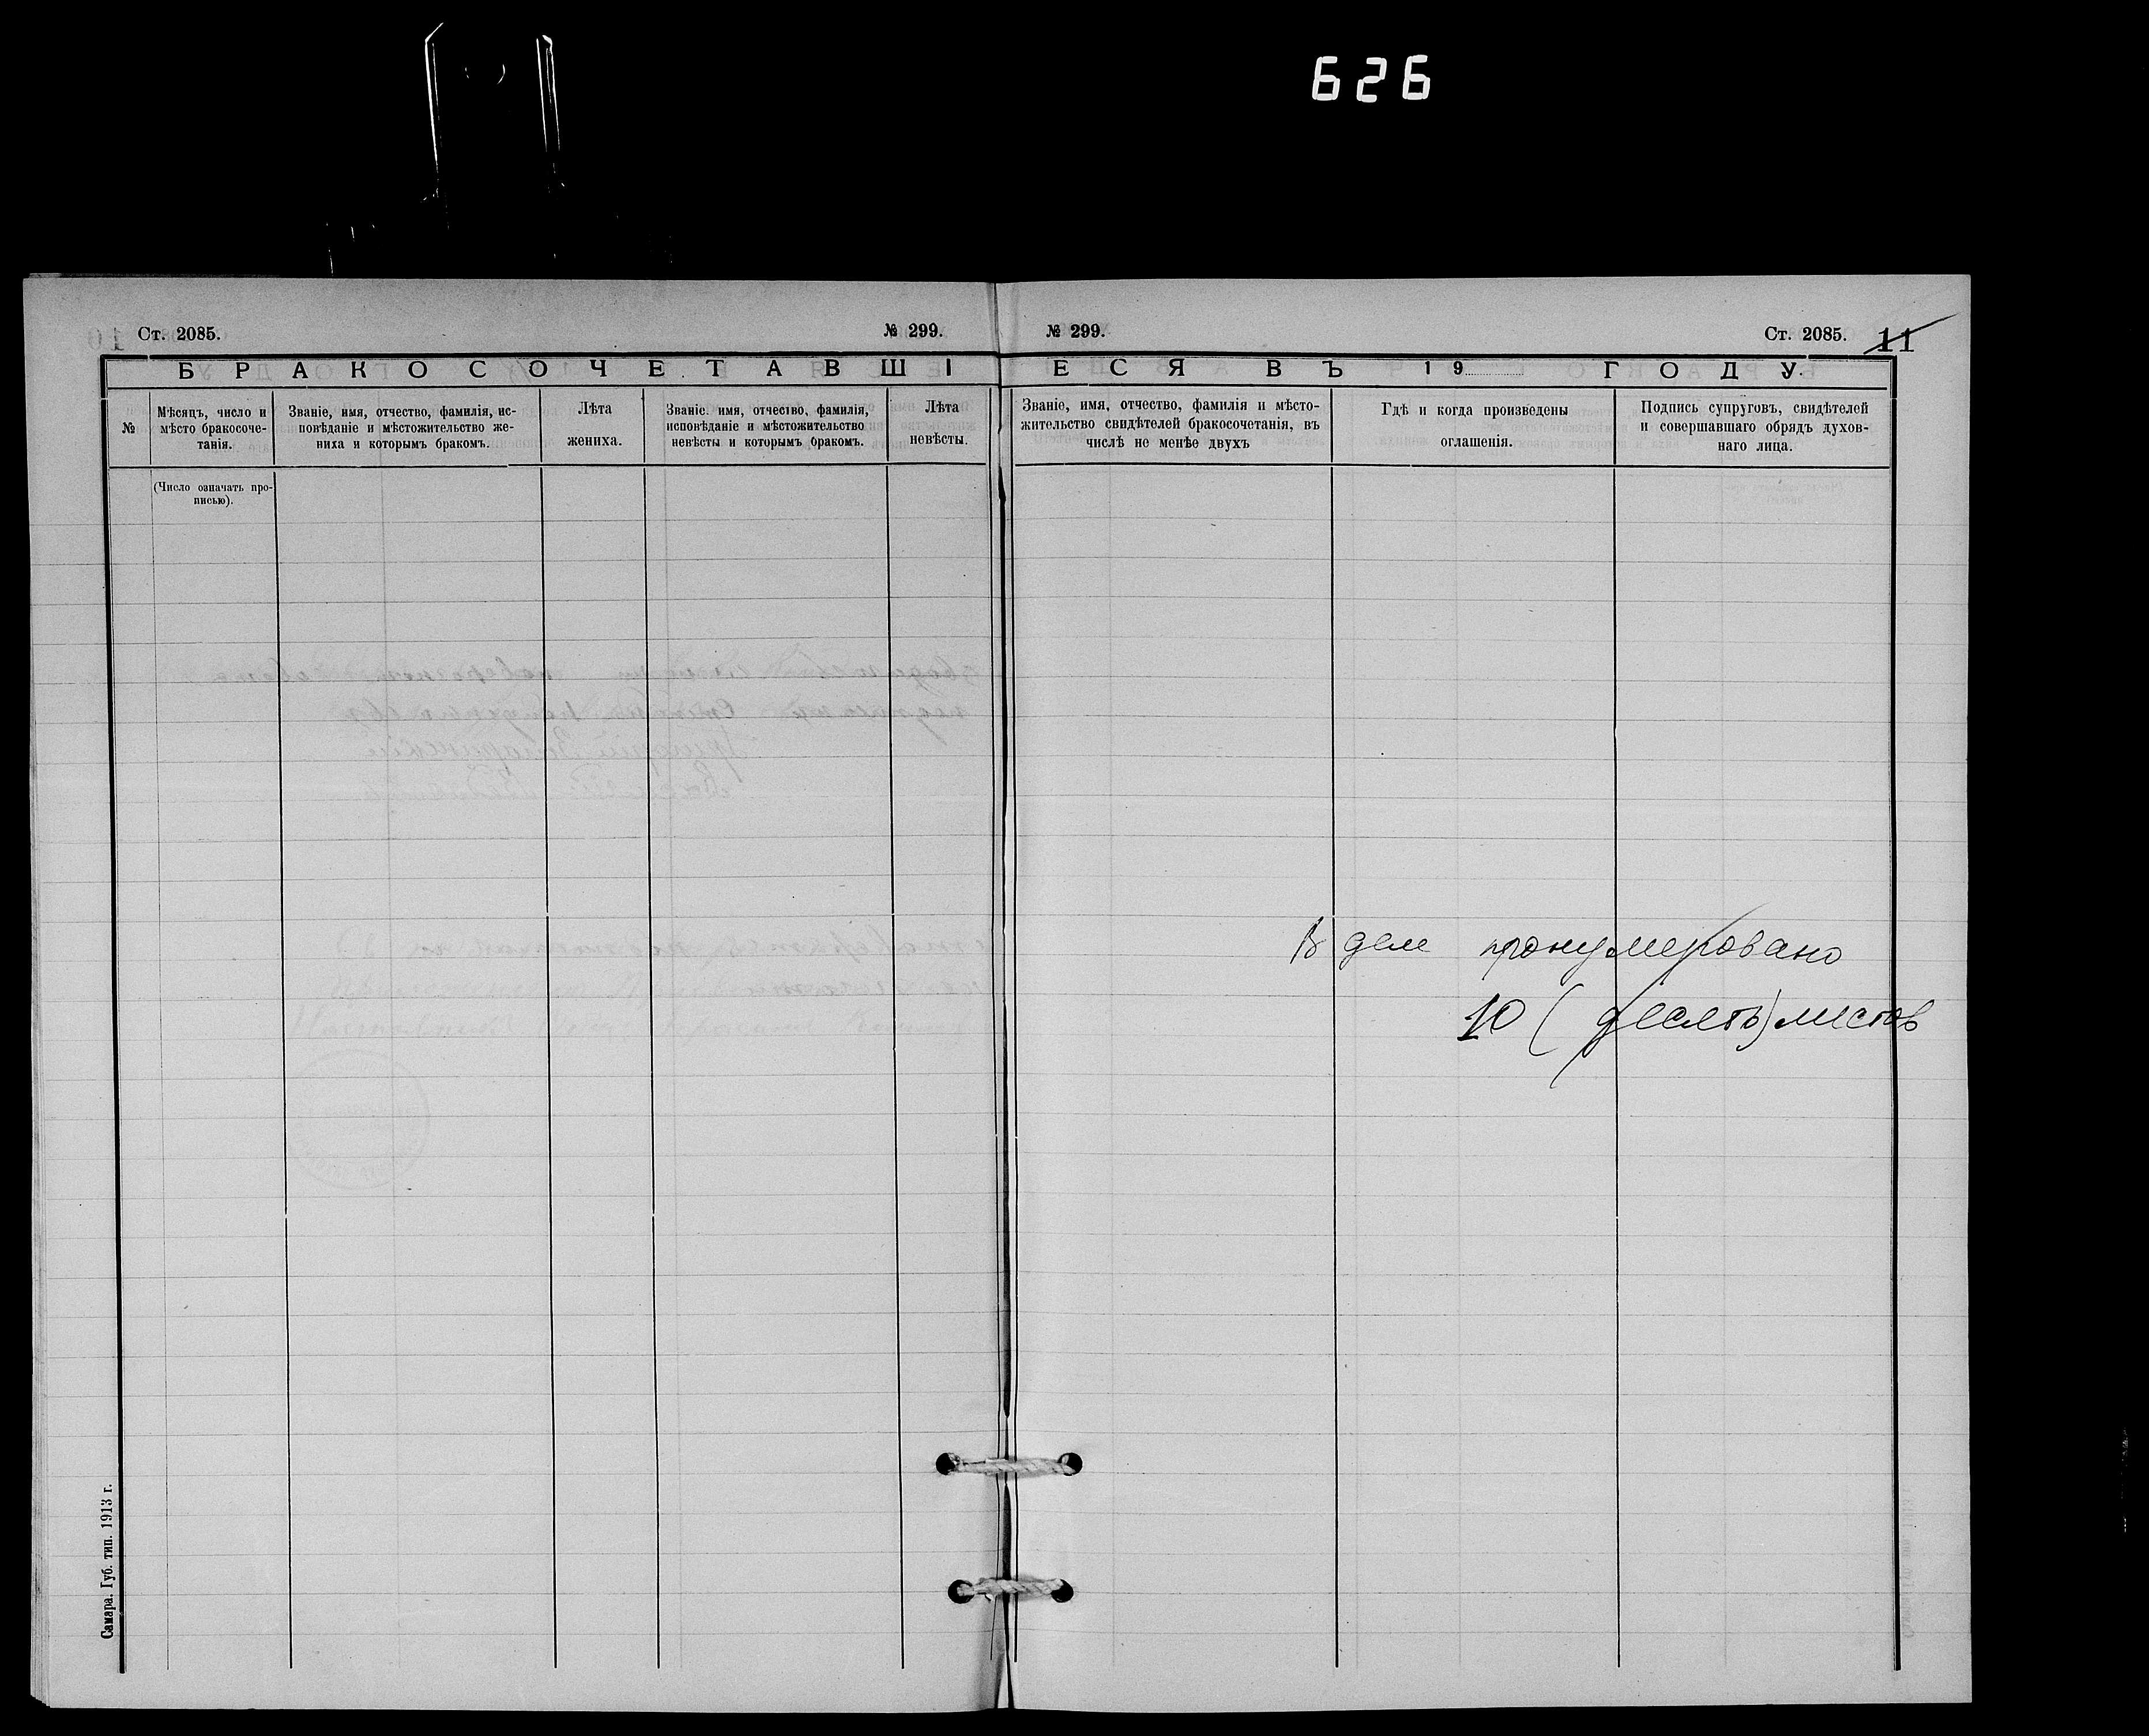 626
Ст. 2085.
№ 299.
№ 299.
Ст. 2085.
11
БРАКОСОЧЕТАВШІЕСЯ ВЪ 19 ГОДУ.
№
Мѣсяцъ, число и
мѣсто бракосоче-
танія.
Званіе, имя, отчество, фамилія, ис-
повѣданіе и мѣстожительство же-
ниха и которымъ бракомъ.
Лѣта
жениха.
Званіе. имя, отчество, фамилія,
исповѣданіе и мѣстожительство
невѣсты и которымъ бракомъ.
Лѣта
невѣсты.
Званіе, имя, отчество, фамилія и мѣсто-
жительство свидѣтелей бракосочетанія, въ
числѣ не менѣе двухъ
Гдѣ и когда произведены
оглашенія.
Подпись супруговъ, свидѣтелей
и совершавшаго обрядъ духов-
наго лица.
(Число означать про-
писью).
В деле пронумеровано
10 (десять) листов
Самара. Губ. тип. 1913 г.